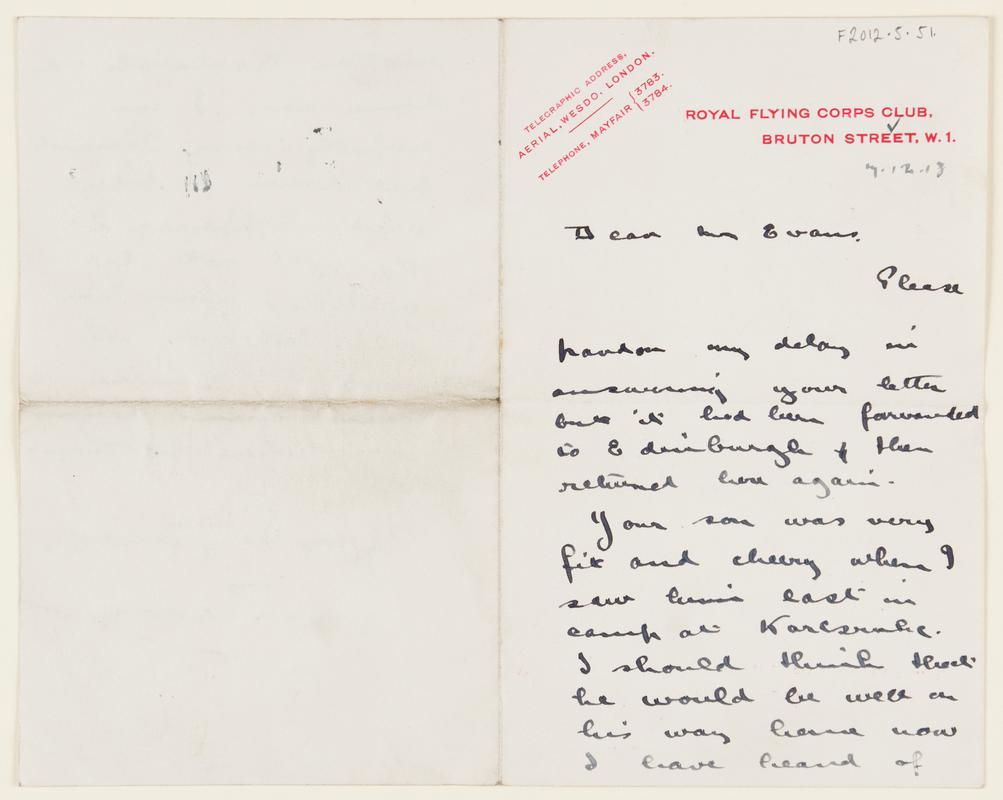 F2012.5.51.
TELEGRAPHIC ADDRESS,
AERIAL, WESDO, LONDON.
TELEPHONE, MAYFAIR {3783.
{3784.
ROYAL FLYING CORPS CLUB,
BRUTON STREET, W.1.
Dear Mr Evans.
Please
pardon my delay in
answering your letter
but it had been forwarded
to Edinburgh & then
returned here again.
Your son was very
fit and cheery when I
saw him last in
camp at Karlsruhe.
I should think that
he would be well on
his way home now
I have heard of